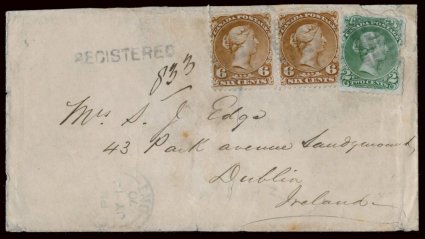 CANADA POSTAGE CANADA POSTAGE CANADA POSTAGE
6 6 6 6 2 2
SIX CENTS SIX CENTS TWO CENTS
REGISTERED
833
Mrs S. J Edge
43 Park avenue Sandymount
Dublin
Ireland